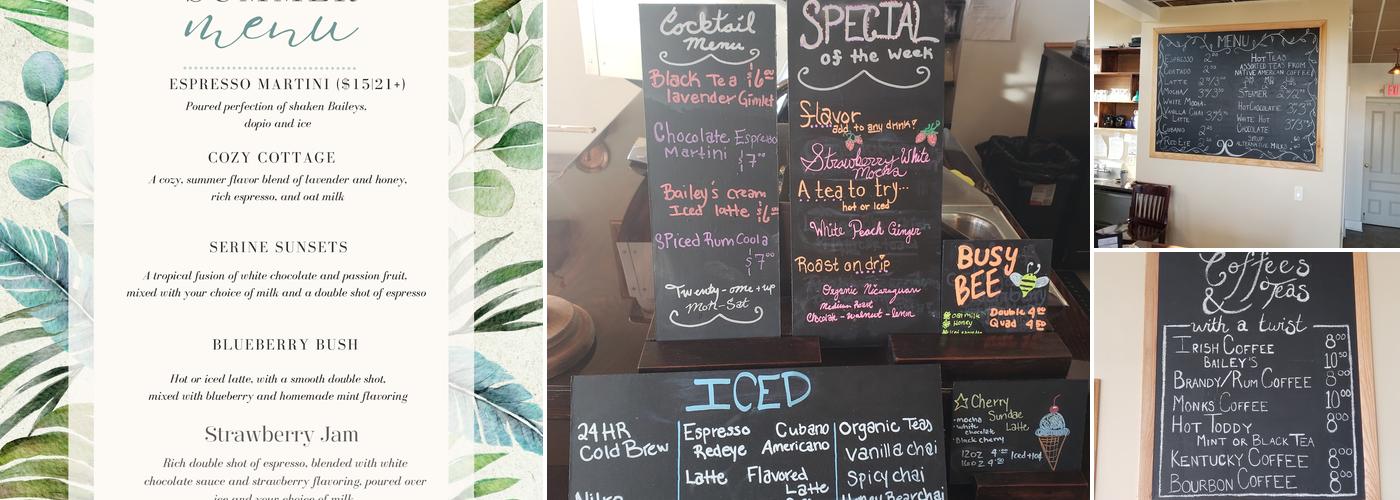 SUMMER
menu
ESPRESSO MARTINI ($15|21+)
Poured perfection of shaken Baileys,
dopio and ice
COZY COTTAGE
A cozy, summer flavor blend of lavender and honey,
rich espresso, and oat milk
SERINE SUNSETS
A tropical fusion of white chocolate and passion fruit,
mixed with your choice of milk and a double shot of espresso
BLUEBERRY BUSH
Hot or iced latte, with a smooth double shot,
mixed with blueberry and homemade mint flavoring
Strawberry Jam
Rich double shot of espresso, blended with white
chocolate sauce and strawberry flavoring, poured over
ice and your choice of milk
Cocktail
Menu
Black Tea $6.00
lavender Gimlet
Chocolate Espresso
Martini $7.00
Bailey's cream
Iced latte
Spiced Rum Coola
$7.00
Twenty-one + up
Mon-Sat
SPECIAL
of the Week
Flavor
add to any drink?
Strawberry White
Mocha
A tea to try...
hot or Iced
White Peach Ginger
Roast on drip
Organic Nicaraguan
Medium Roast
Chocolate-walnut-lemon
BUSY
BEE
oat milk
Honey
Double 4.00
Quad 4.50
ICED
24 HR
Cold Brew
Espresso
Redeye
Latte
Cubano
Americano
Flavored
Latte
Organic Teas
Vanilla chai
Spicy chai
Honey Bear chai
Cherry
Sundae
Latte
mocha
white
chocolate
Black cherry
12oz
16oz
MENU
ESPRESSO
CORTADO
LATTE
MOCHA
WHITE MOCHA
VANILLA CHAI
LATTE
CUBANO
RED EYE
HOT TEAS
ASSORTED TEAS FROM
NATIVE AMERICAN COFFEE
STEAMER
HOT CHOCOLATE
WHITE HOT
CHOCOLATE
SYRUP
ALTERNATIVE MILKS
Coffees
& Teas
with a twist
IRISH COFFEE 8.00
BAILEY'S 10.50
BRANDY/RUM COFFEE 8.00
MONKS COFFEE 10.00
HOT TODDY 8.00
MINT OR BLACK TEA
KENTUCKY COFFEE 8.00
BOURBON COFFEE 8.00